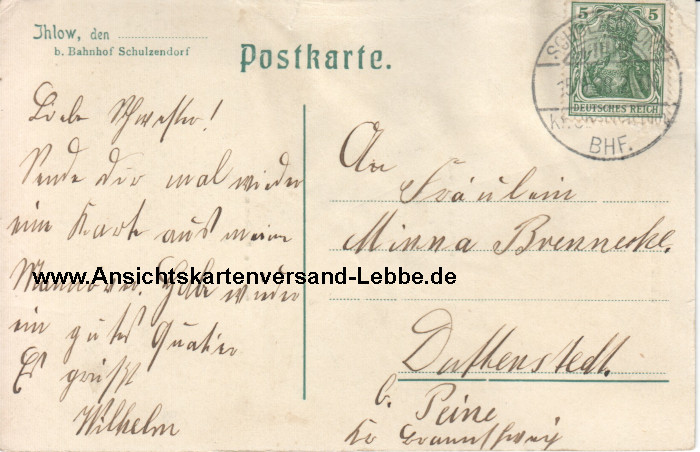 Ihlow, den
b. Bahnhof Schulzendorf
Postkarte.
5 5
DEUTSCHES REICH
BHF.
Liebe Schwester!
Sende dir mal wieder
eine Karte aus meine
Manöver. Habe wieder
ein gutes Quatier
Es grüßt
Wilhelm
An
Fräulein
Minna Brennecke.
Duttenstedt.
b. Peine
Kr Braunschweig
www.Ansichtskartenversand-Lebbe.de